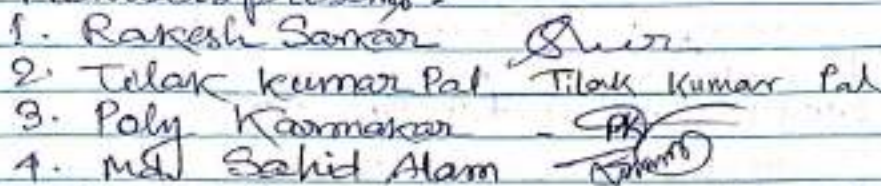 1. Rakesh Sarkar
2. Tilak Kumar Pal Tilak Kumar Pal
3. Poly Karmakar - PK
4. Md Sahid Alam